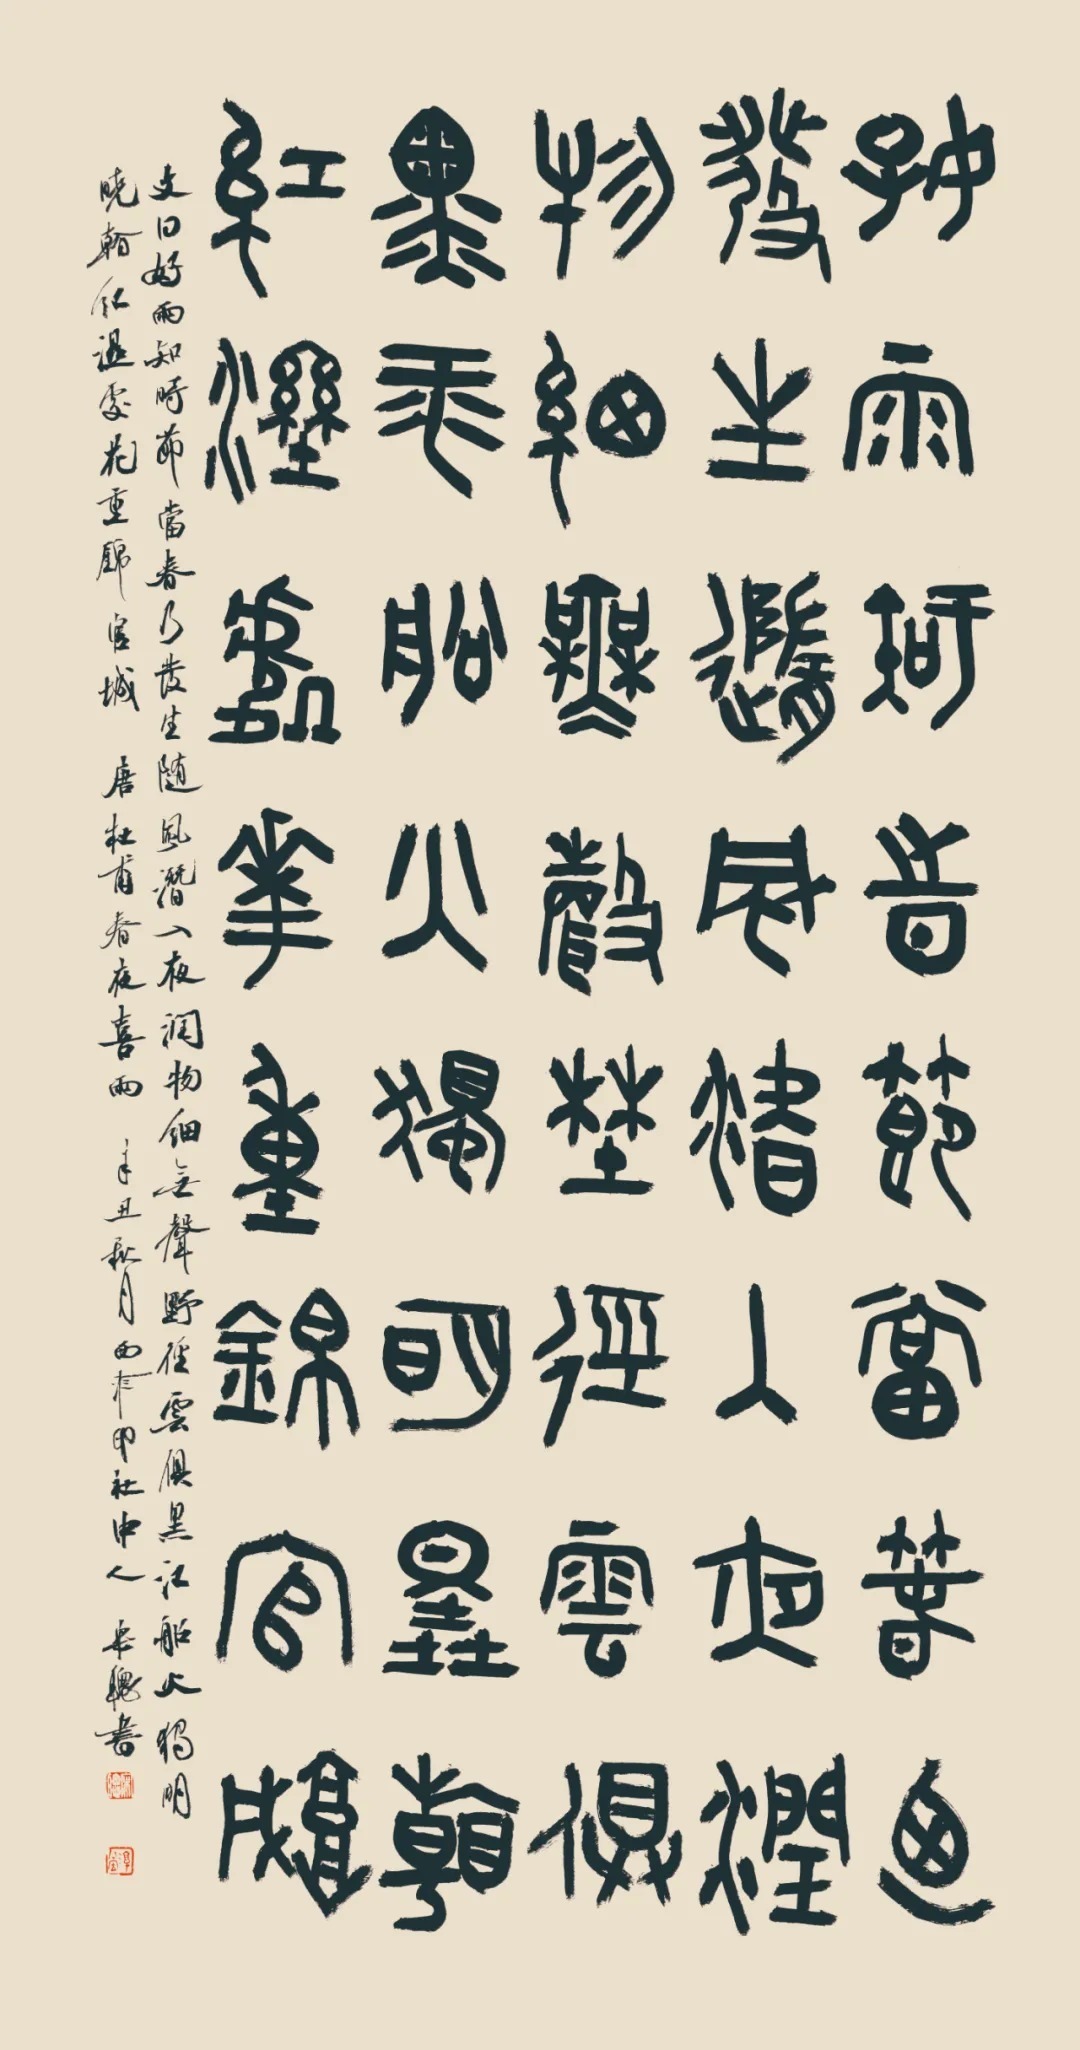 好雨知時節當春乃
發生隨風潛入夜潤
物細無聲野徑雲俱
黑江船火獨明星朝
紅溼處花重錦官城
文曰好雨知時節當春乃發生随風潛入夜润物细無聲野徑雲俱黑江船火獨明
曉看红濕處花重錦官城 唐杜甫春夜喜雨 辛丑秋月西泠印社中人 書